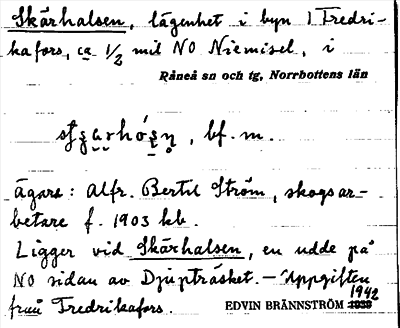 Skärhalsen, lägenhet i byn Fredri-
kafors, ca 1/2 mil NO Niemisel, i
Råneå sn och tg, Norrbottens län
, bf. m.
Ägare: Alfr. Bertil Ström, skogsar-
betare f. 1903 kb.
Ligger vid Skärhalsen, en udde på
NO sidan av Djupträsket. – Uppgiften
från Fredrikafors. EDVIN BRÄNNSTRÖM 1942